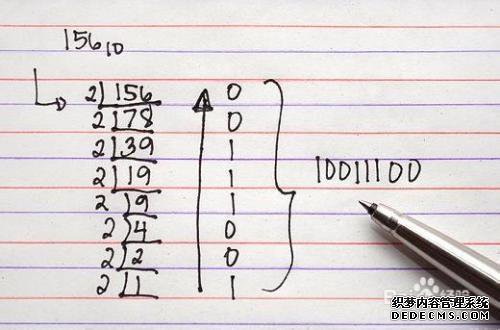 156₁₀
2 156 0
2 78 0
2 39 1
2 19 1
2 9 1
2 4 0
2 2 0
2 1 1
10011100
织梦内容管理系统
DEDECMS.COM